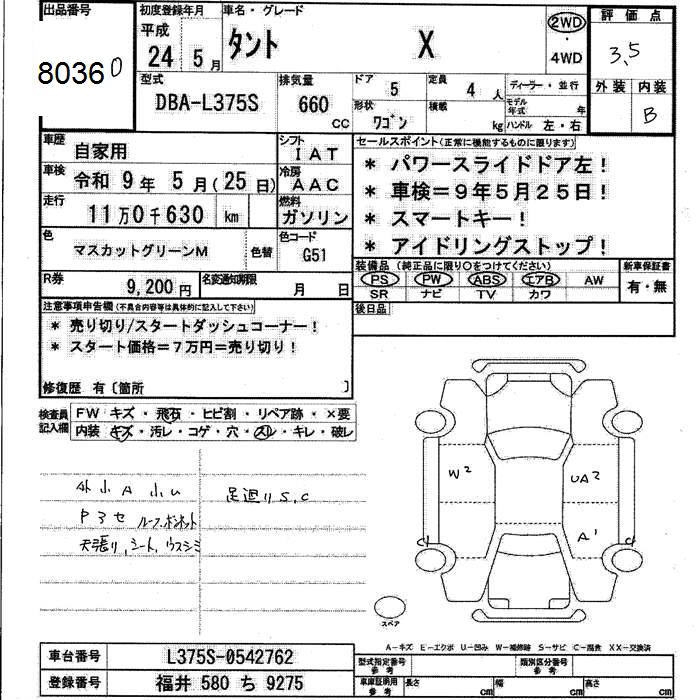 出品番号
80360
初度登録年月
平成
24 5月
車名・グレード
タント X
2WD
・
4WD
評価点
3.5
外装 内装
B
型式
DBA-L375S
排気量
660
CC
ドア
5
定員
4人
形状
ワゴン
積載
kg
ディーラー・並行
モデル年式 年
ハンドル 左・右
車歴
自家用
シフト
IAT
車検
令和 9年 5月(25日)
冷房
AAC
走行
11万0千630 km
燃料
ガソリン
色
マスカットグリーンM
色替
色コード
G51
R券
9,200円
名変通知期限
月 日
セールスポイント(正常に機能するものに限ります)
* パワースライドドア左!
* 車検=9年5月25日!
* スマートキー!
* アイドリングストップ!
装備品 (純正品に限り〇をつけてください)
PS PW ABS エアB AW
SR ナビ TV カワ
新車保証書
有・無
後日品
注意事項申告欄(不具合内容等は具体的に記入して下さい)
* 売り切り/スタートダッシュコーナー!
* スタート価格=7万円=売り切り!
修復歴 有〔箇所 〕
検査員記入欄
FW キズ・飛石・ヒビ割・リペア跡・×要
内装 キズ・汚レ・コゲ・穴・スレ・キレ・破レ
外小A小U
足廻りS,C
ルーフ,ボンネット
天張り,シート,ウスシミ
W2
UA2
A1
スペア
A-キズ E-エクボ U-凹み W-補修跡 S-サビ C-腐食 XX-交換済
車台番号
L375S-0542762
登録番号
福井 580 ち 9275
型式指定番号
参考
類別区分番号
参考
車庫証明用
参考
長さ cm
幅 cm
高さ cm